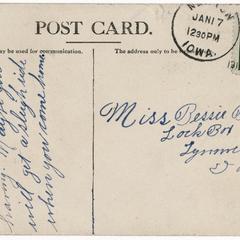 POST CARD.
may be used for communication.
The address only to be
JAN 17
12 30PM
IOWA.
191
having. Maybe you
will get a sleigh ride
when you come home.
Miss Bessie
Lock Box